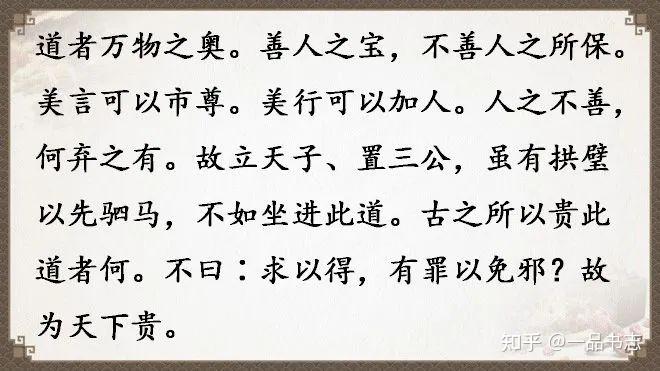 道者万物之奥。善人之宝，不善人之所保。
美言可以市尊。美行可以加人。人之不善，
何弃之有。故立天子、置三公，虽有拱璧
以先驷马，不如坐进此道。古之所以贵此
道者何。不曰：求以得，有罪以免邪？故
为天下贵。
知乎 @一品书志